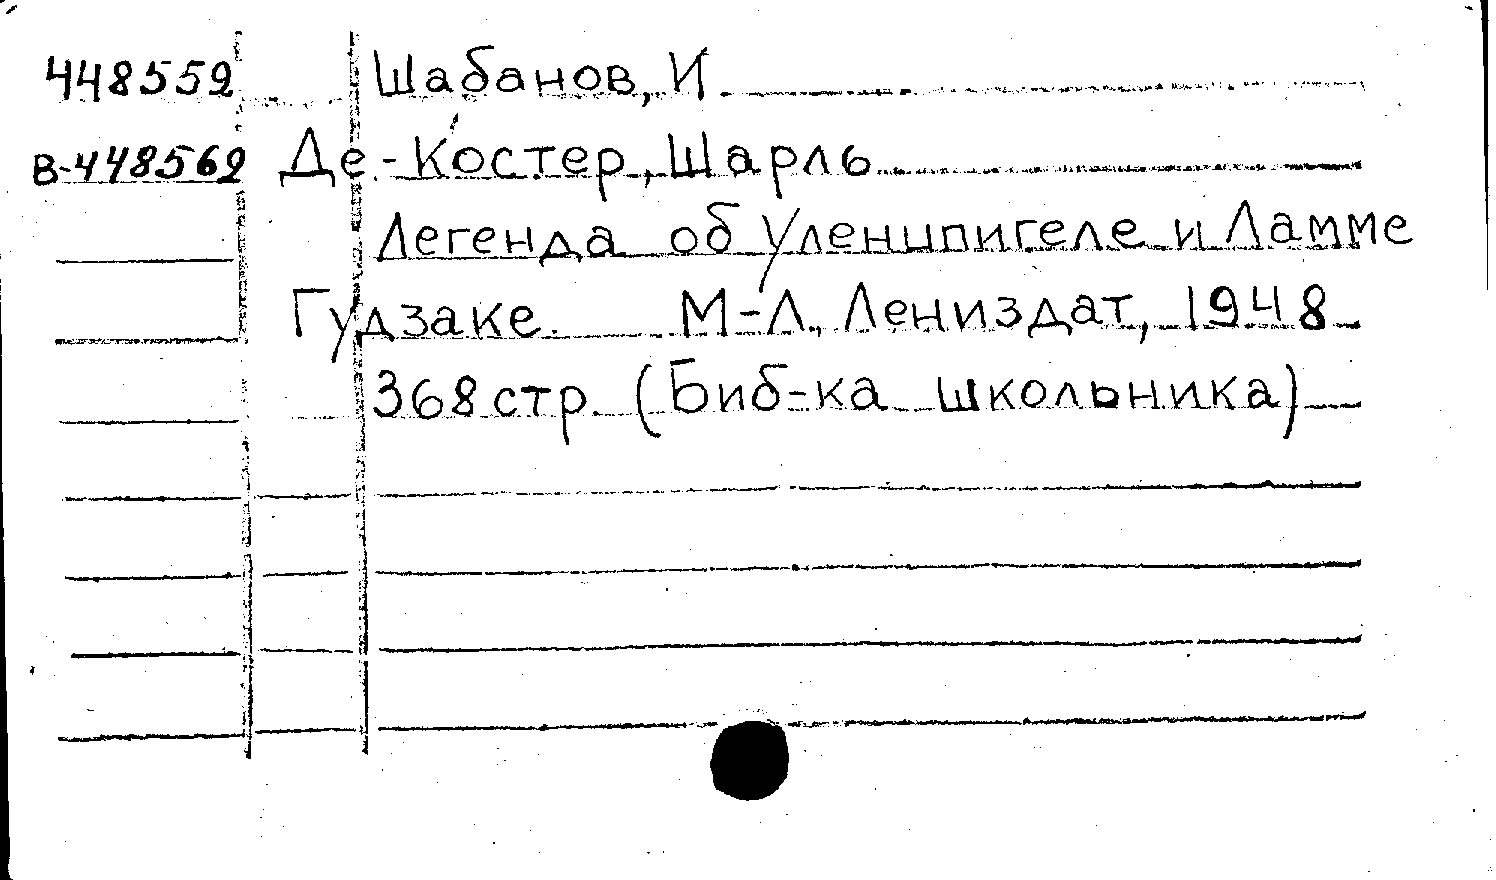 448559 Шабанов, И.
В-448569 Де-Костер, Шарль
Легенда об Уленшпигеле и Ламме
Гудзаке. М-Л, Лениздат, 1948
368 стр. (Биб-ка школьника)